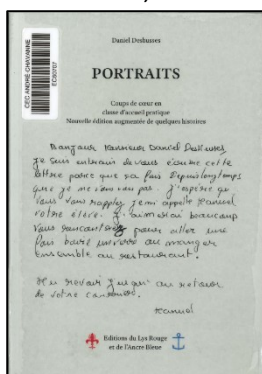 CEC ANDRE-CHAVANNE
Daniel Deshusses
PORTRAITS
Coups de cœur en
classe d'accueil pratique
Nouvelle édition augmentée de quelques histoires
Bonjour Monsieur Daniel Deshusses
Je suis entrain de vous écrire cette
lettre parce que sa fais depuis longtemps
que je me vous vu pas. J'espère que
Vous Vous rappley je mi appelle
votre élève. J'aimerai beaucoup
Vous rencontrer pour aller une
fois boire un verre ou manger
ensemble au restaurant.
de votre
Editions du Lys Rouge
et de l'Ancre Bleue